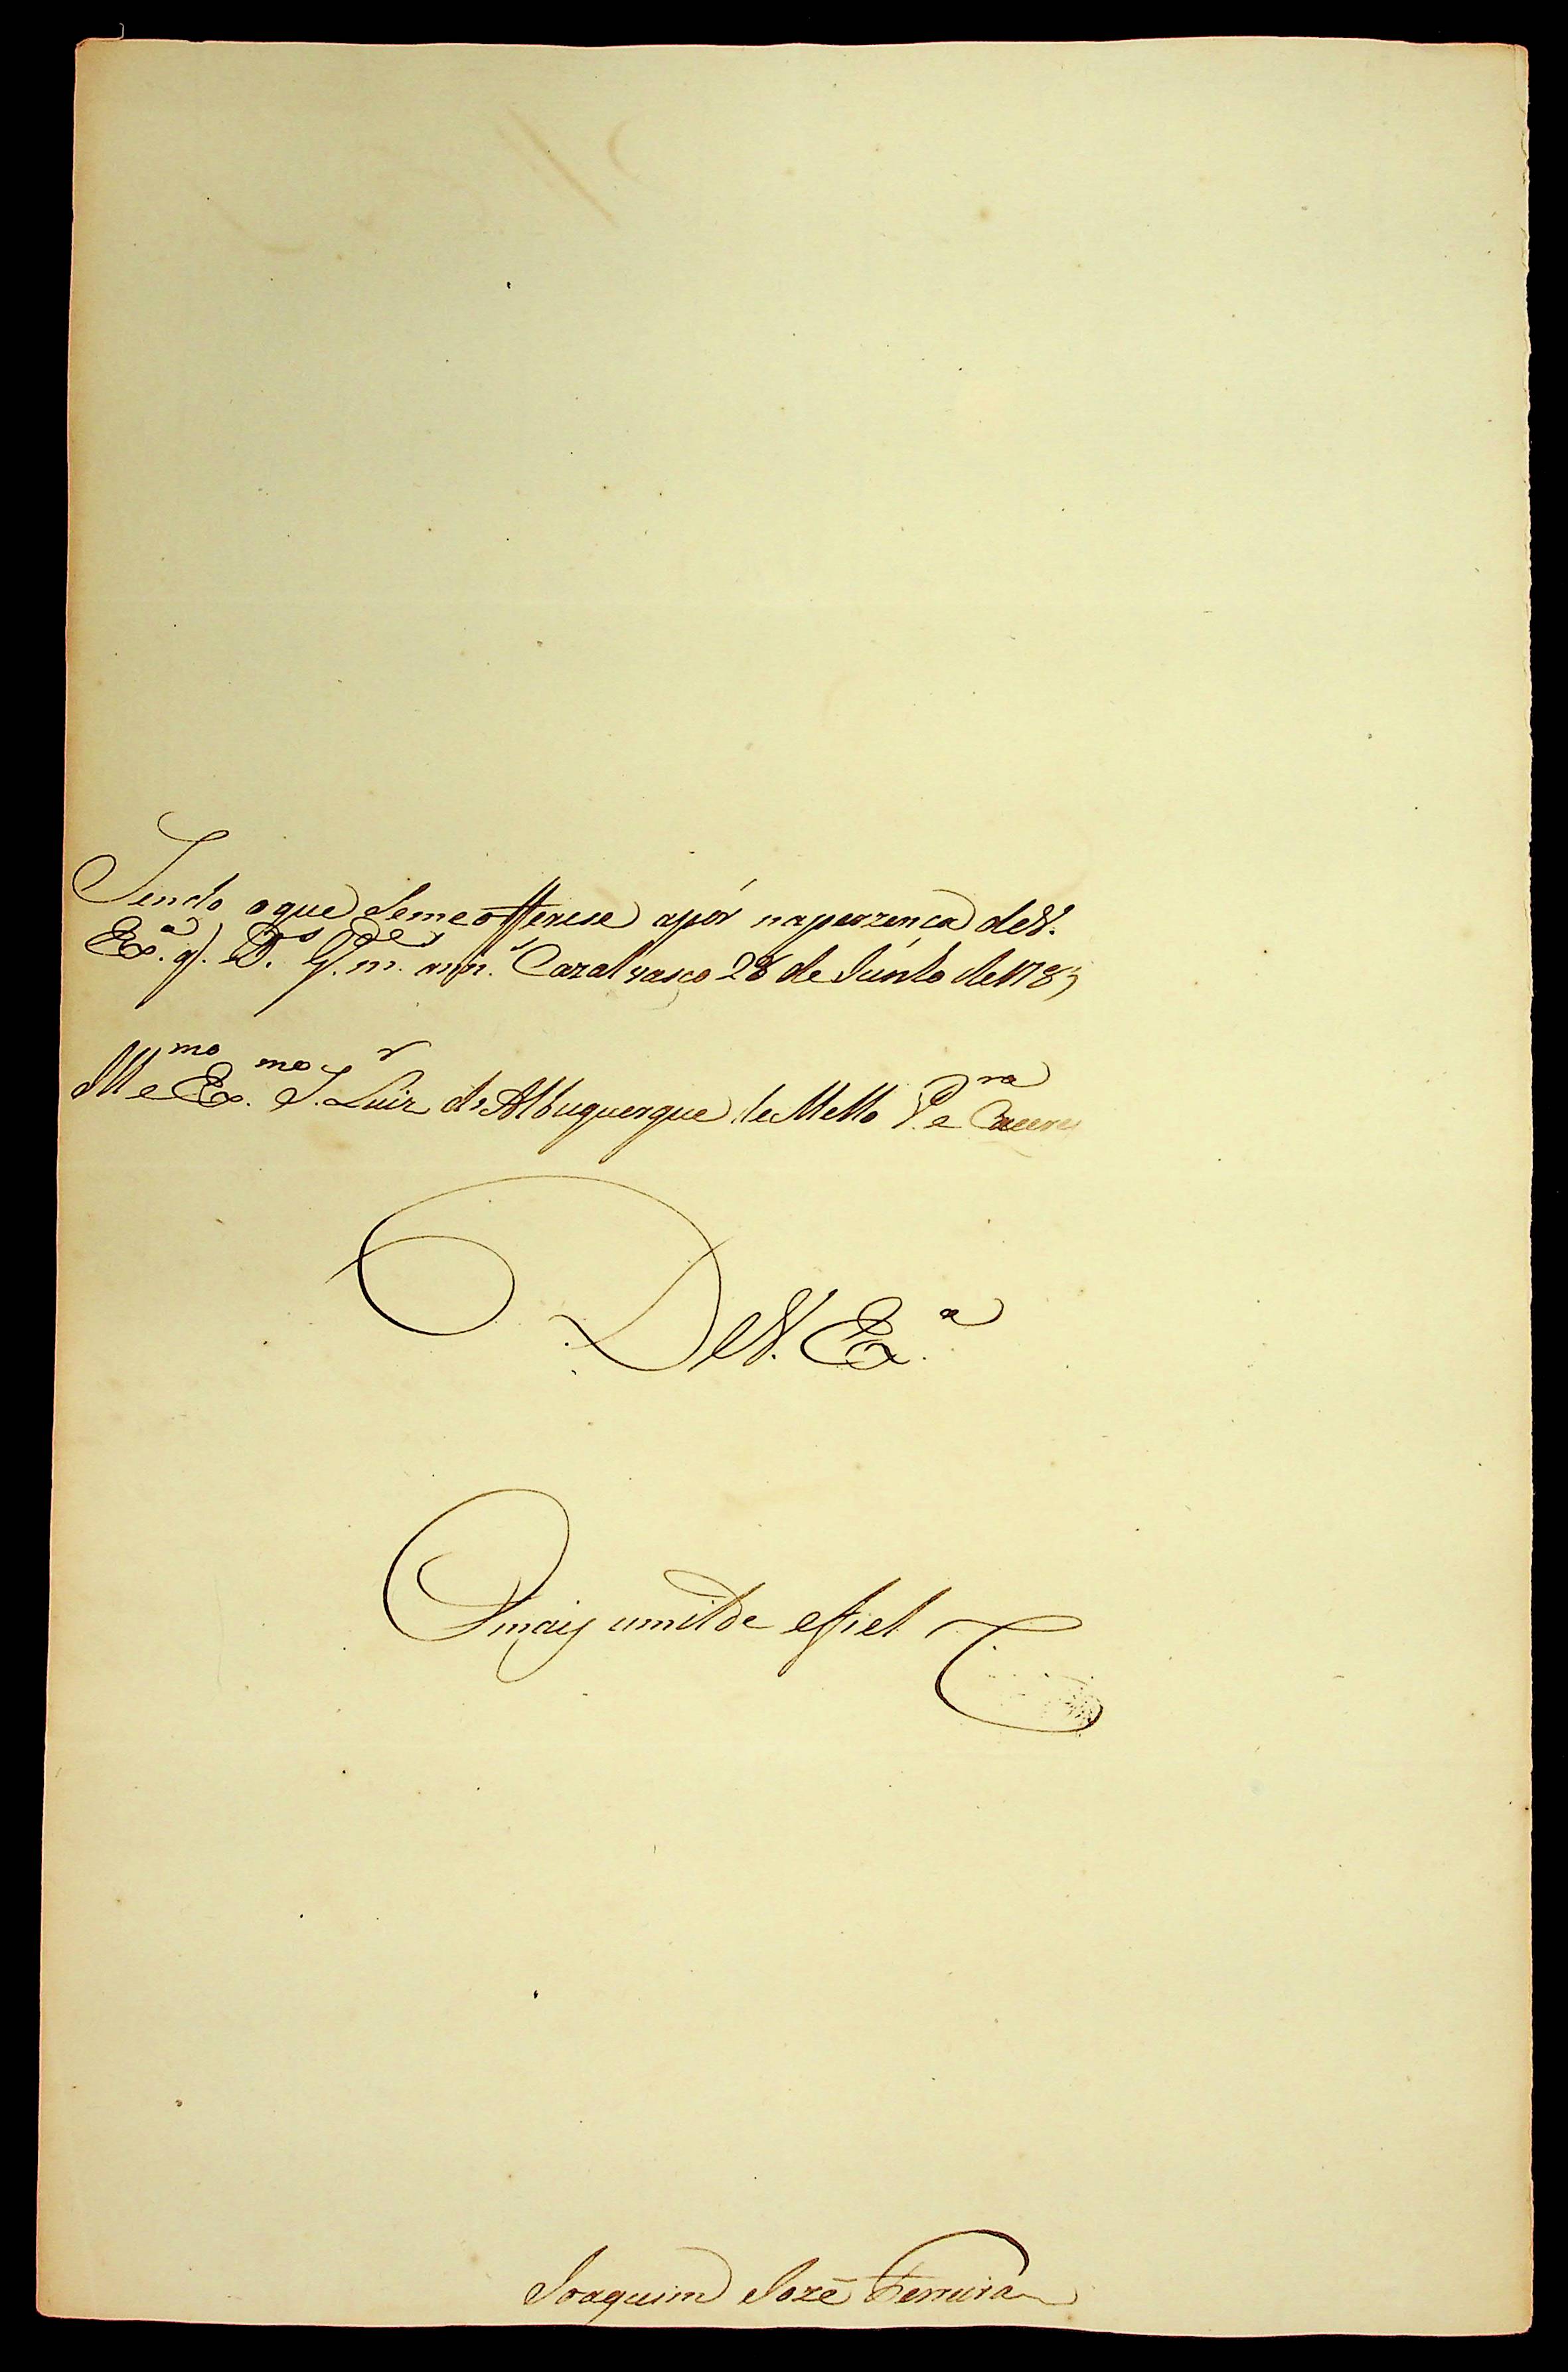 Sendo oque Seme offerese apór naperzença deV.
Ex.ª q. D.s G.de m. ann.s Cazal vasco 28 de Junho de 1783
Ill.mo e Ex.mo S.r Luiz de Albuquerque de Mello P.ra e Caceres
DeV. Ex.ª
Omais umilde efiel
Joaquim Jozé Ferreira